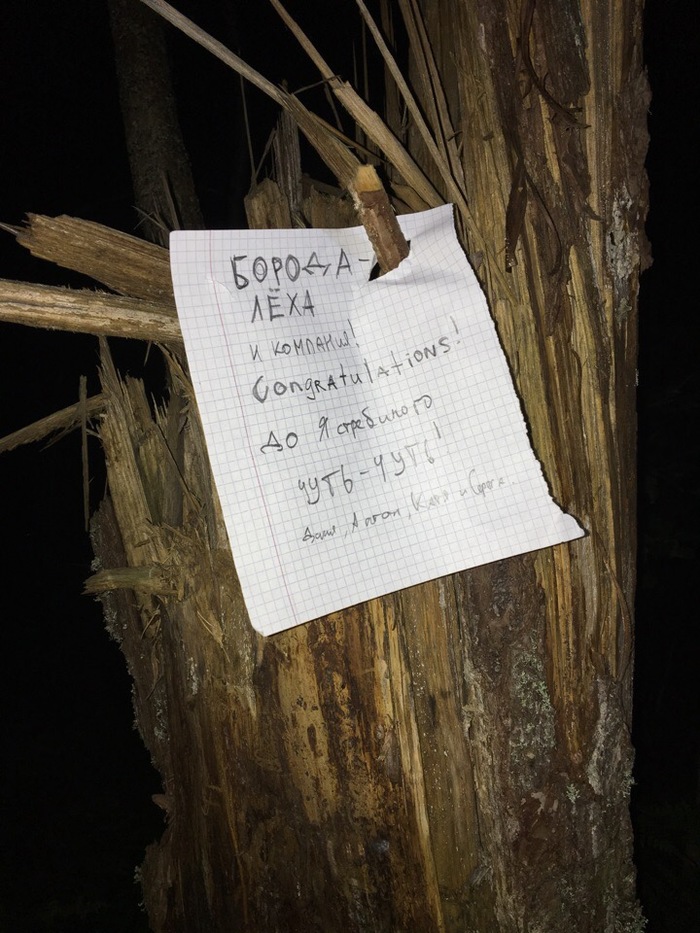 БОРОДА-
ЛЁХА
и компания!
Congratulations!
ДО Ястребиного
чуть-чуть!
Даша, Антон, Катя и Серёга.